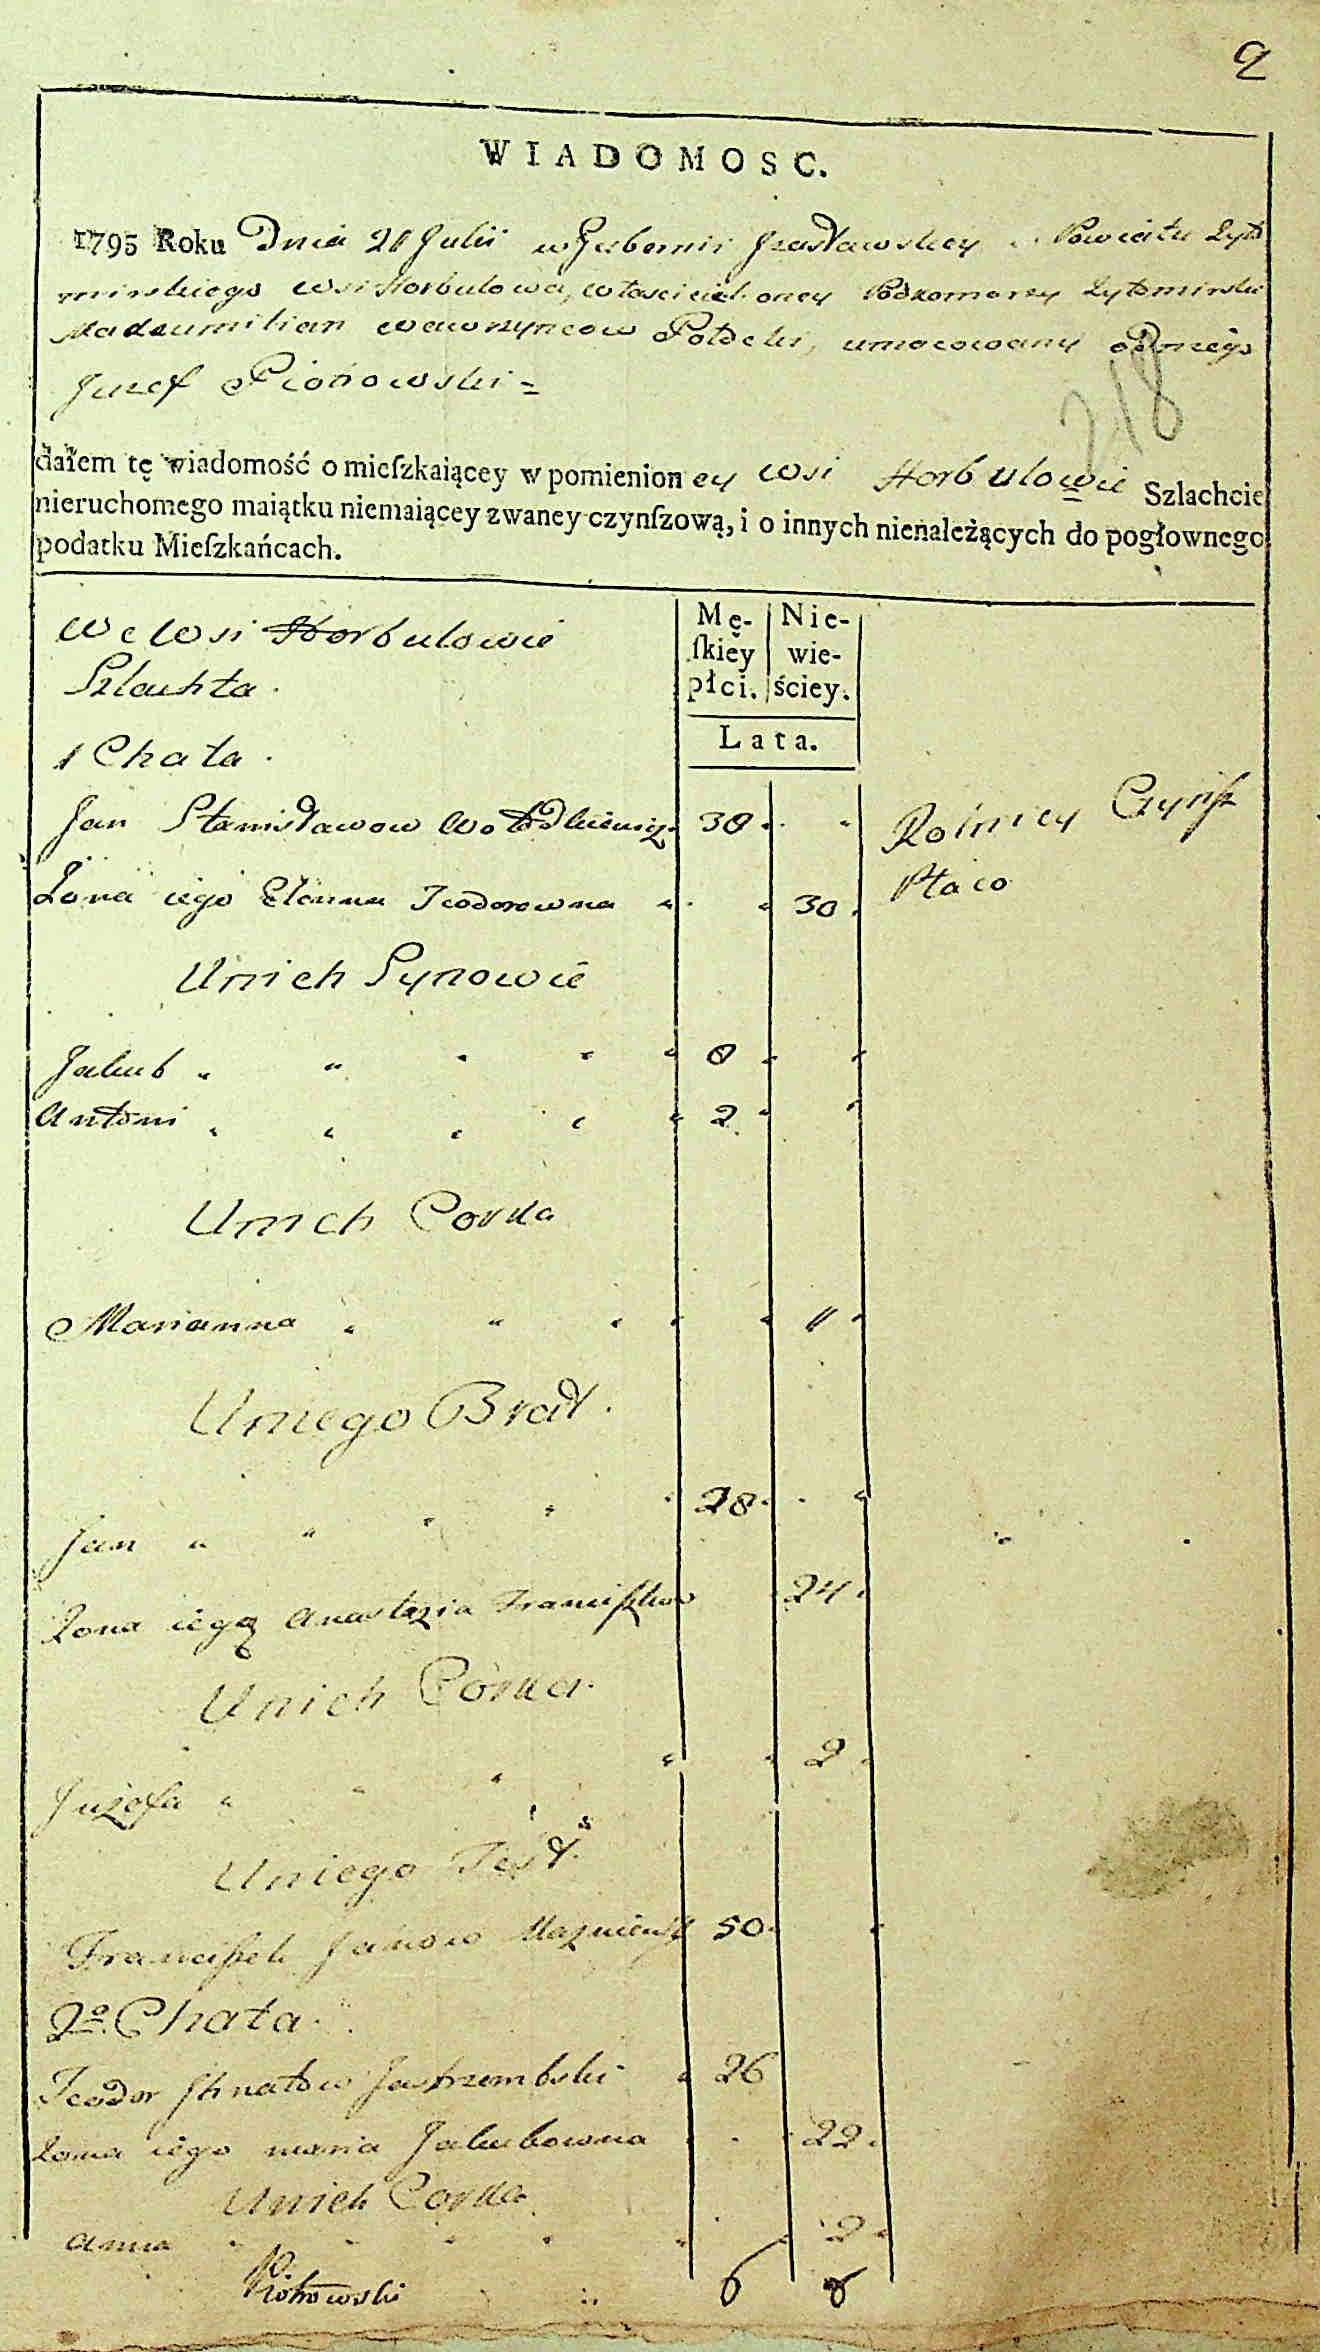 2
WIADOMOSC.
1795 Roku Dnia 20 Julii w Gubernii Izasławskiey Powiatu Zyto
mirskiego wsi Horbulowa, właściciel oney Podkomorzy Zytomirski
Maxumilian Wawrzyncow Potocki, umocowany od niego
Juzef Piotrowski =
218
dałem tę wiadomość o mieſzkaiącey w pomienioney wsi Horbulowie Szlachcie
nieruchomego maiątku niemaiącey zwaney czynſzową, i o innych nienależących do pogłownego
podatku Mieſzkańcach.
We Wsi Horbulowie
Szlachta.
Mę- Nie-
ſkiey wie-
płci. ściey.
Lata.
1 Chata.
Jan Stanisławow Wołodkiewicz 30 Rolnicy Czynsz
Żona iego Teodorowna 30 Płaco
Unich Synowie
Jakub 8
Antoni 2
Unich Corka
Marianna 11
Uniego Brat.
Jan 28
Żona iego Anastazia Franciszkow 24
Unich Corka.
Juzefa 2
Uniego Teść
Franciszek Janow 50
2º Chata.
Teodor Ihnatow Jastrzembski 26
Żona iego Maria Jakubowna 22
Unich Corka
Anna 2
Piotrowski 6 6